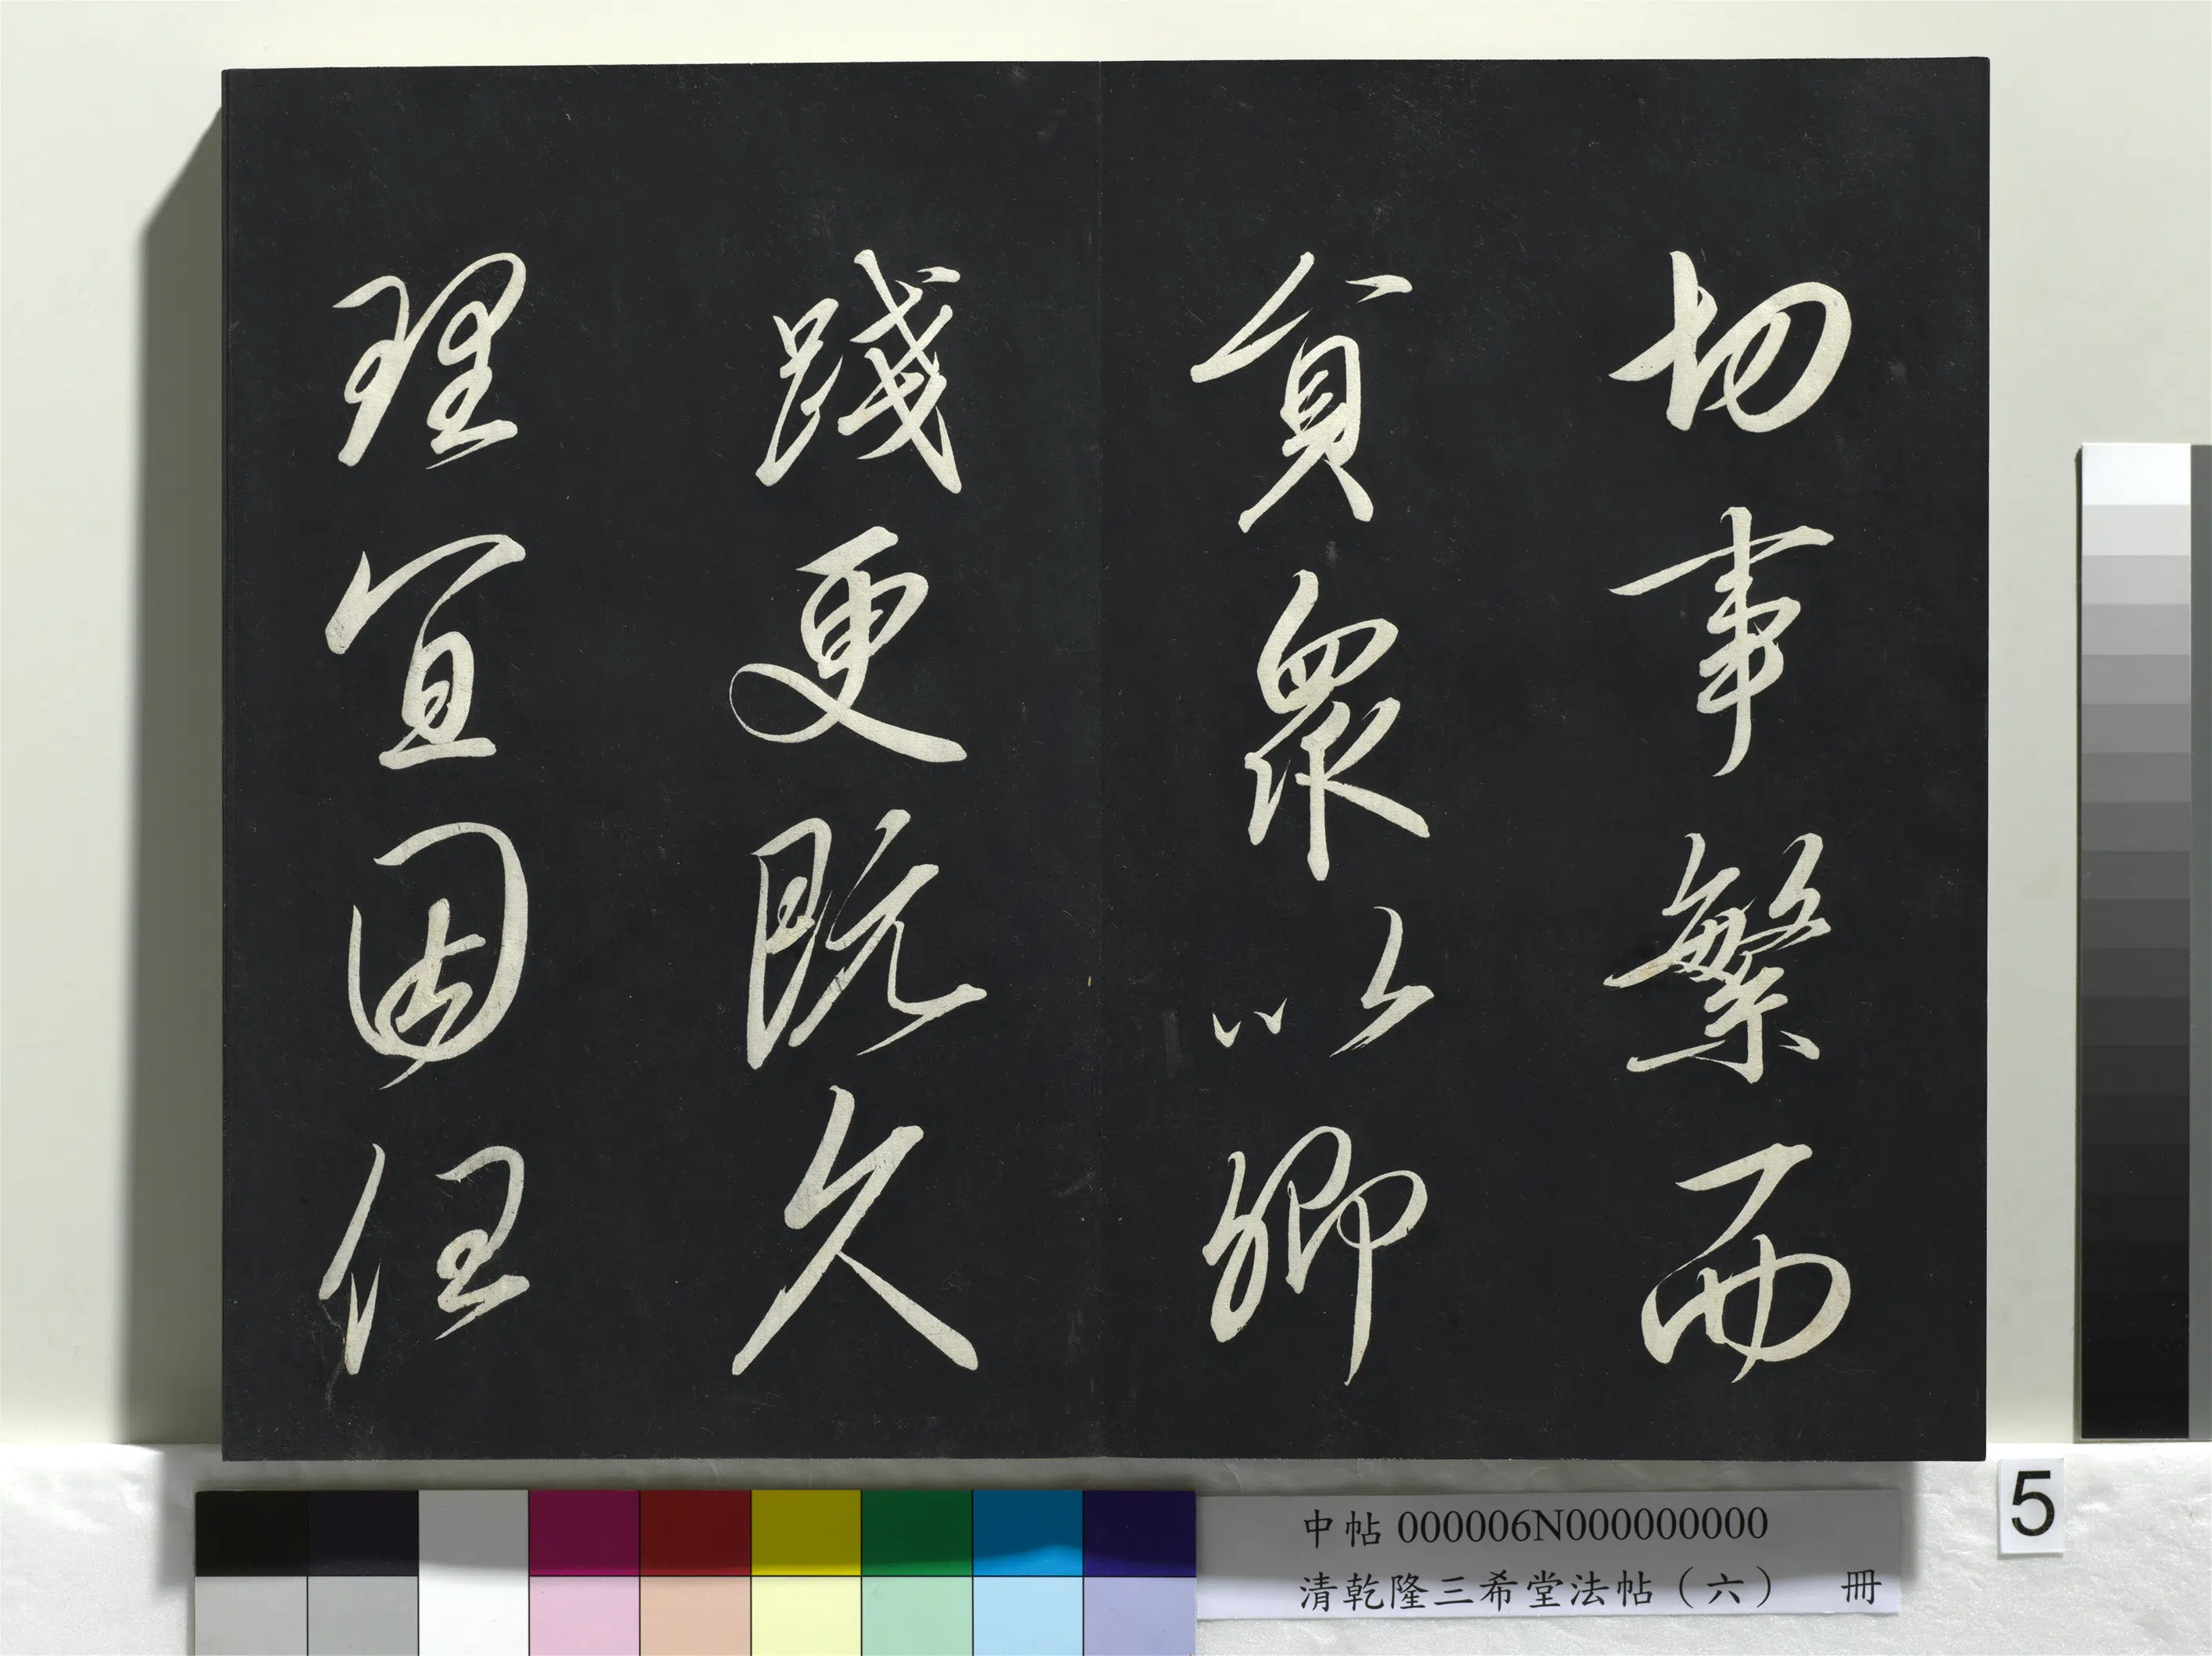 切事繁而
員眾以卿
踐更既久
理宜因任
中帖 000006N000000000
清乾隆三希堂法帖（六） 冊
5